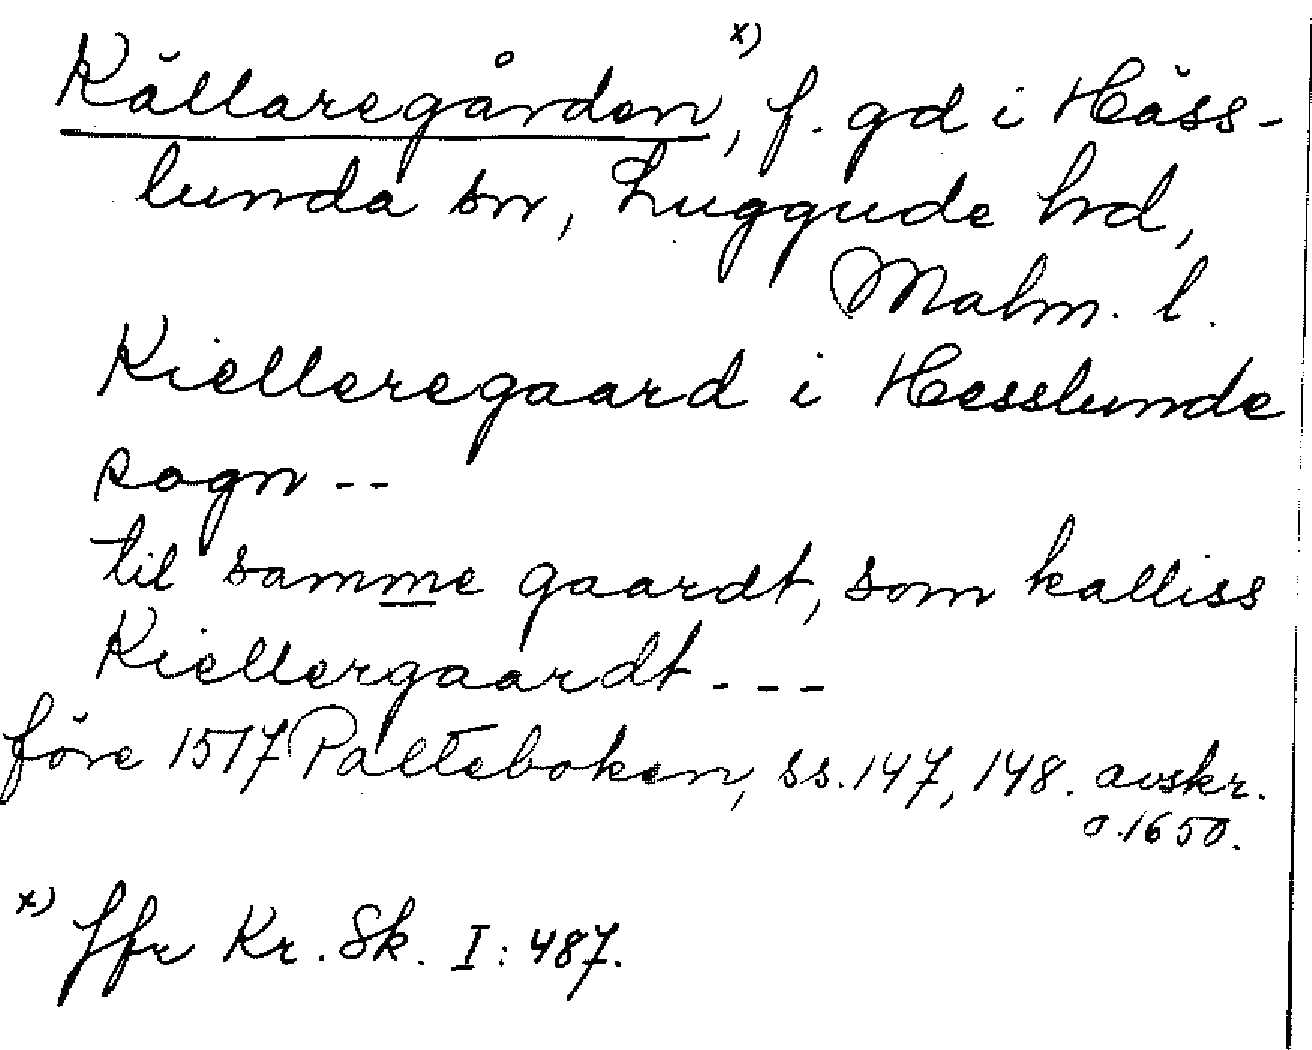 Källaregården x), f. gd i Häss-
lunda sn, Luggude hd,
Malm. l.
Kielleregaard i Hesslunde
sogn --
til samme gaardt, som kalliss
Kiellergaardt ---
före 1517 Palteboken, ss. 147, 148. avskr.
o. 1650.
x) Jfr Kr. Sk. I: 487.